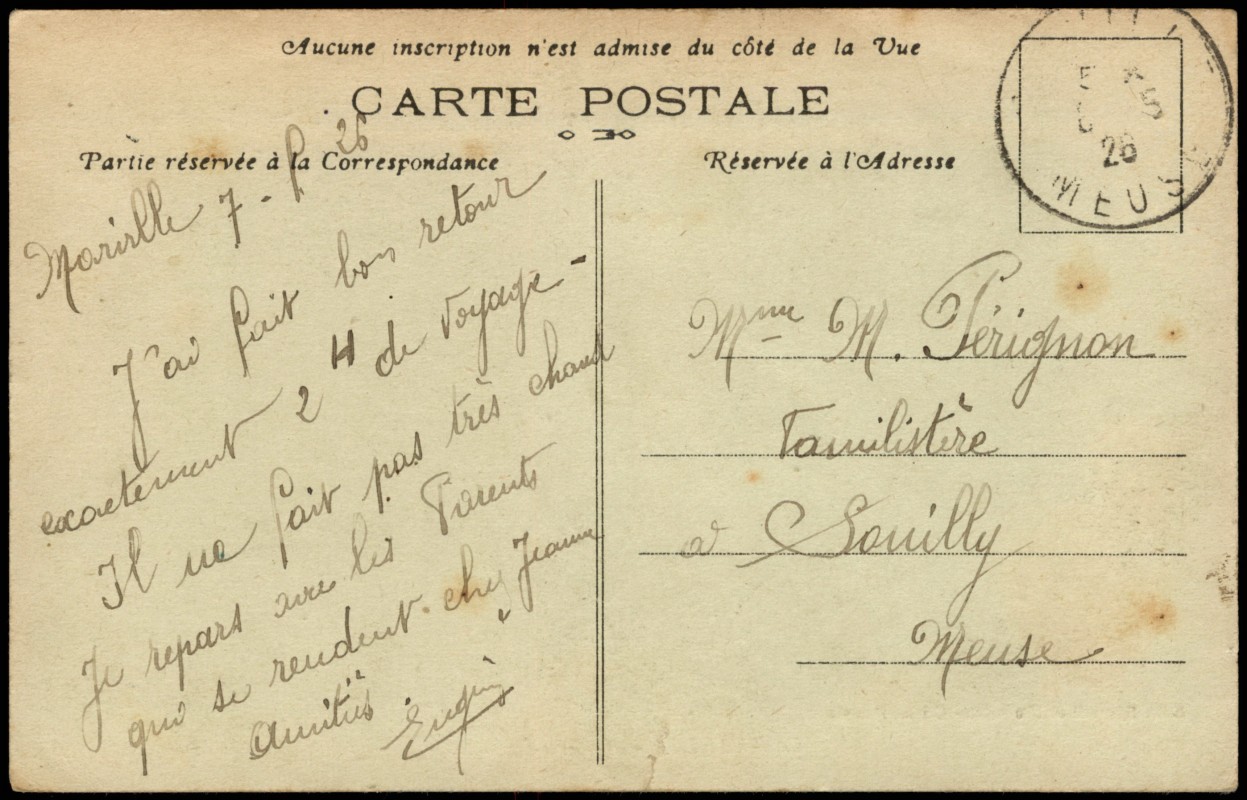 Aucune inscription n'est admise du côté de la Vue
CARTE POSTALE
Partie réservée à la Correspondance
Réservée à l'Adresse
26
MEUSE
7 - 26
J'ai fait bon retour
exactement 2 H de voyage -
Il ne fait pas très chaud
Je repars avec les Parents
qui se rendent chez Jeanne
Amitiés.
Mme M. Pérignon
Familistère
à Souilly
Meuse